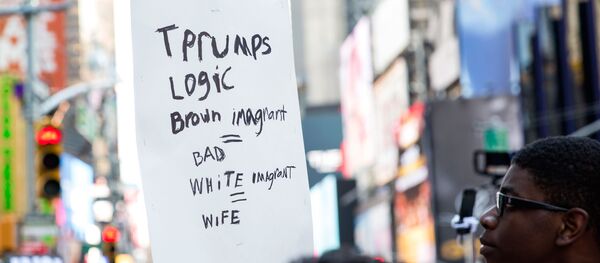 TPRUMPS
LOGIC
BROWN imagrant
=
BAD
WHITE imagrant
=
WiFE